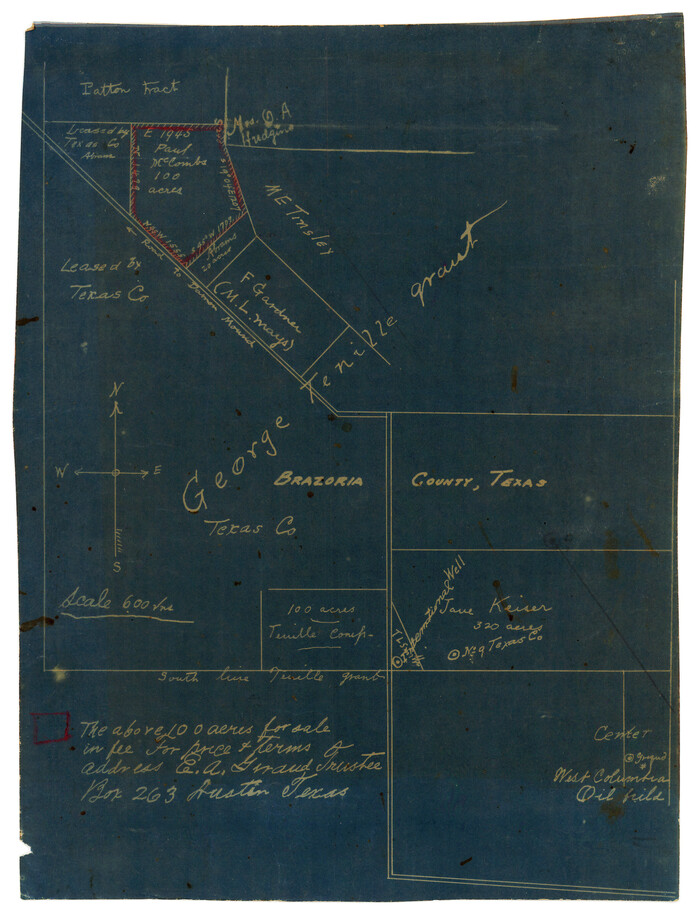 Patton Tract
Mrs. O. A
Hudgins
Leased by
Texas Co
E 1940
Paul
McCombs
100
acres
M E Tinsley
20 acres
Leased By
Texas Co
← Road To Damon Mound
F Gardner
(M. L. Mays)
George Tenille grant
N
W E
S
BRAZORIA COUNTY, TEXAS
Texas Co
Scale 600 Vrs
100 acres
Tenille comp-
International Well
Jane Keiser
320 acres
No 9 Texas Co
South line Tenille grant
The above 100 acres for sale
in fee For price & terms of
address E. A. Giraud Trustee
Box 263 Austin Texas
Center
West Columbia
Oil field